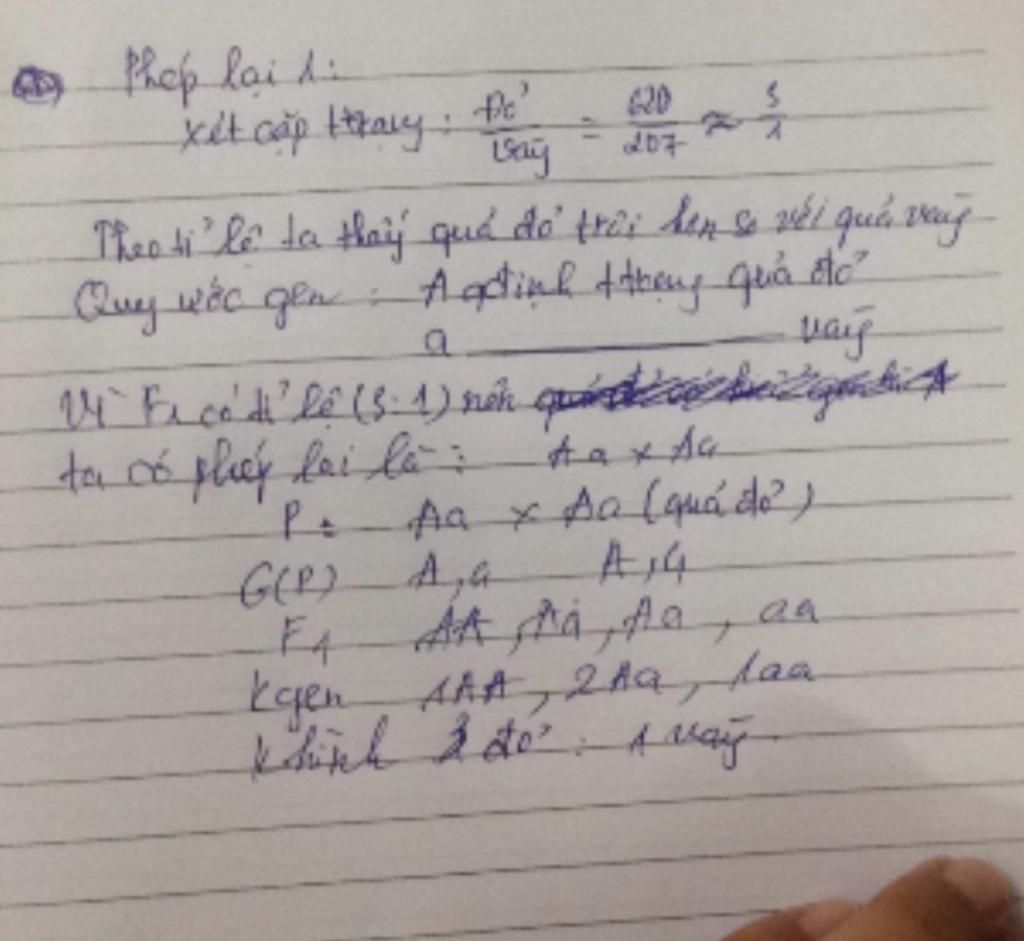 Phép lai 1:
Xét cặp ttrạng: Đỏ/Vàng = 620/207 ≈ 3/1
Theo tỉ lệ ta thấy quả đỏ trội hơn so với quả vàng
Quy ước gen: A qđịnh ttrạng quả đỏ
a ——— vàng
Vì F1 có tỉ lệ (3:1) nên
ta có phép lai là: Aa x Aa
P: Aa x Aa (quả đỏ)
G(P) A,a A,a
F1 AA, Aa, Aa, aa
kgen 1AA, 2Aa, 1aa
k hình 3 đỏ: 1 vàng